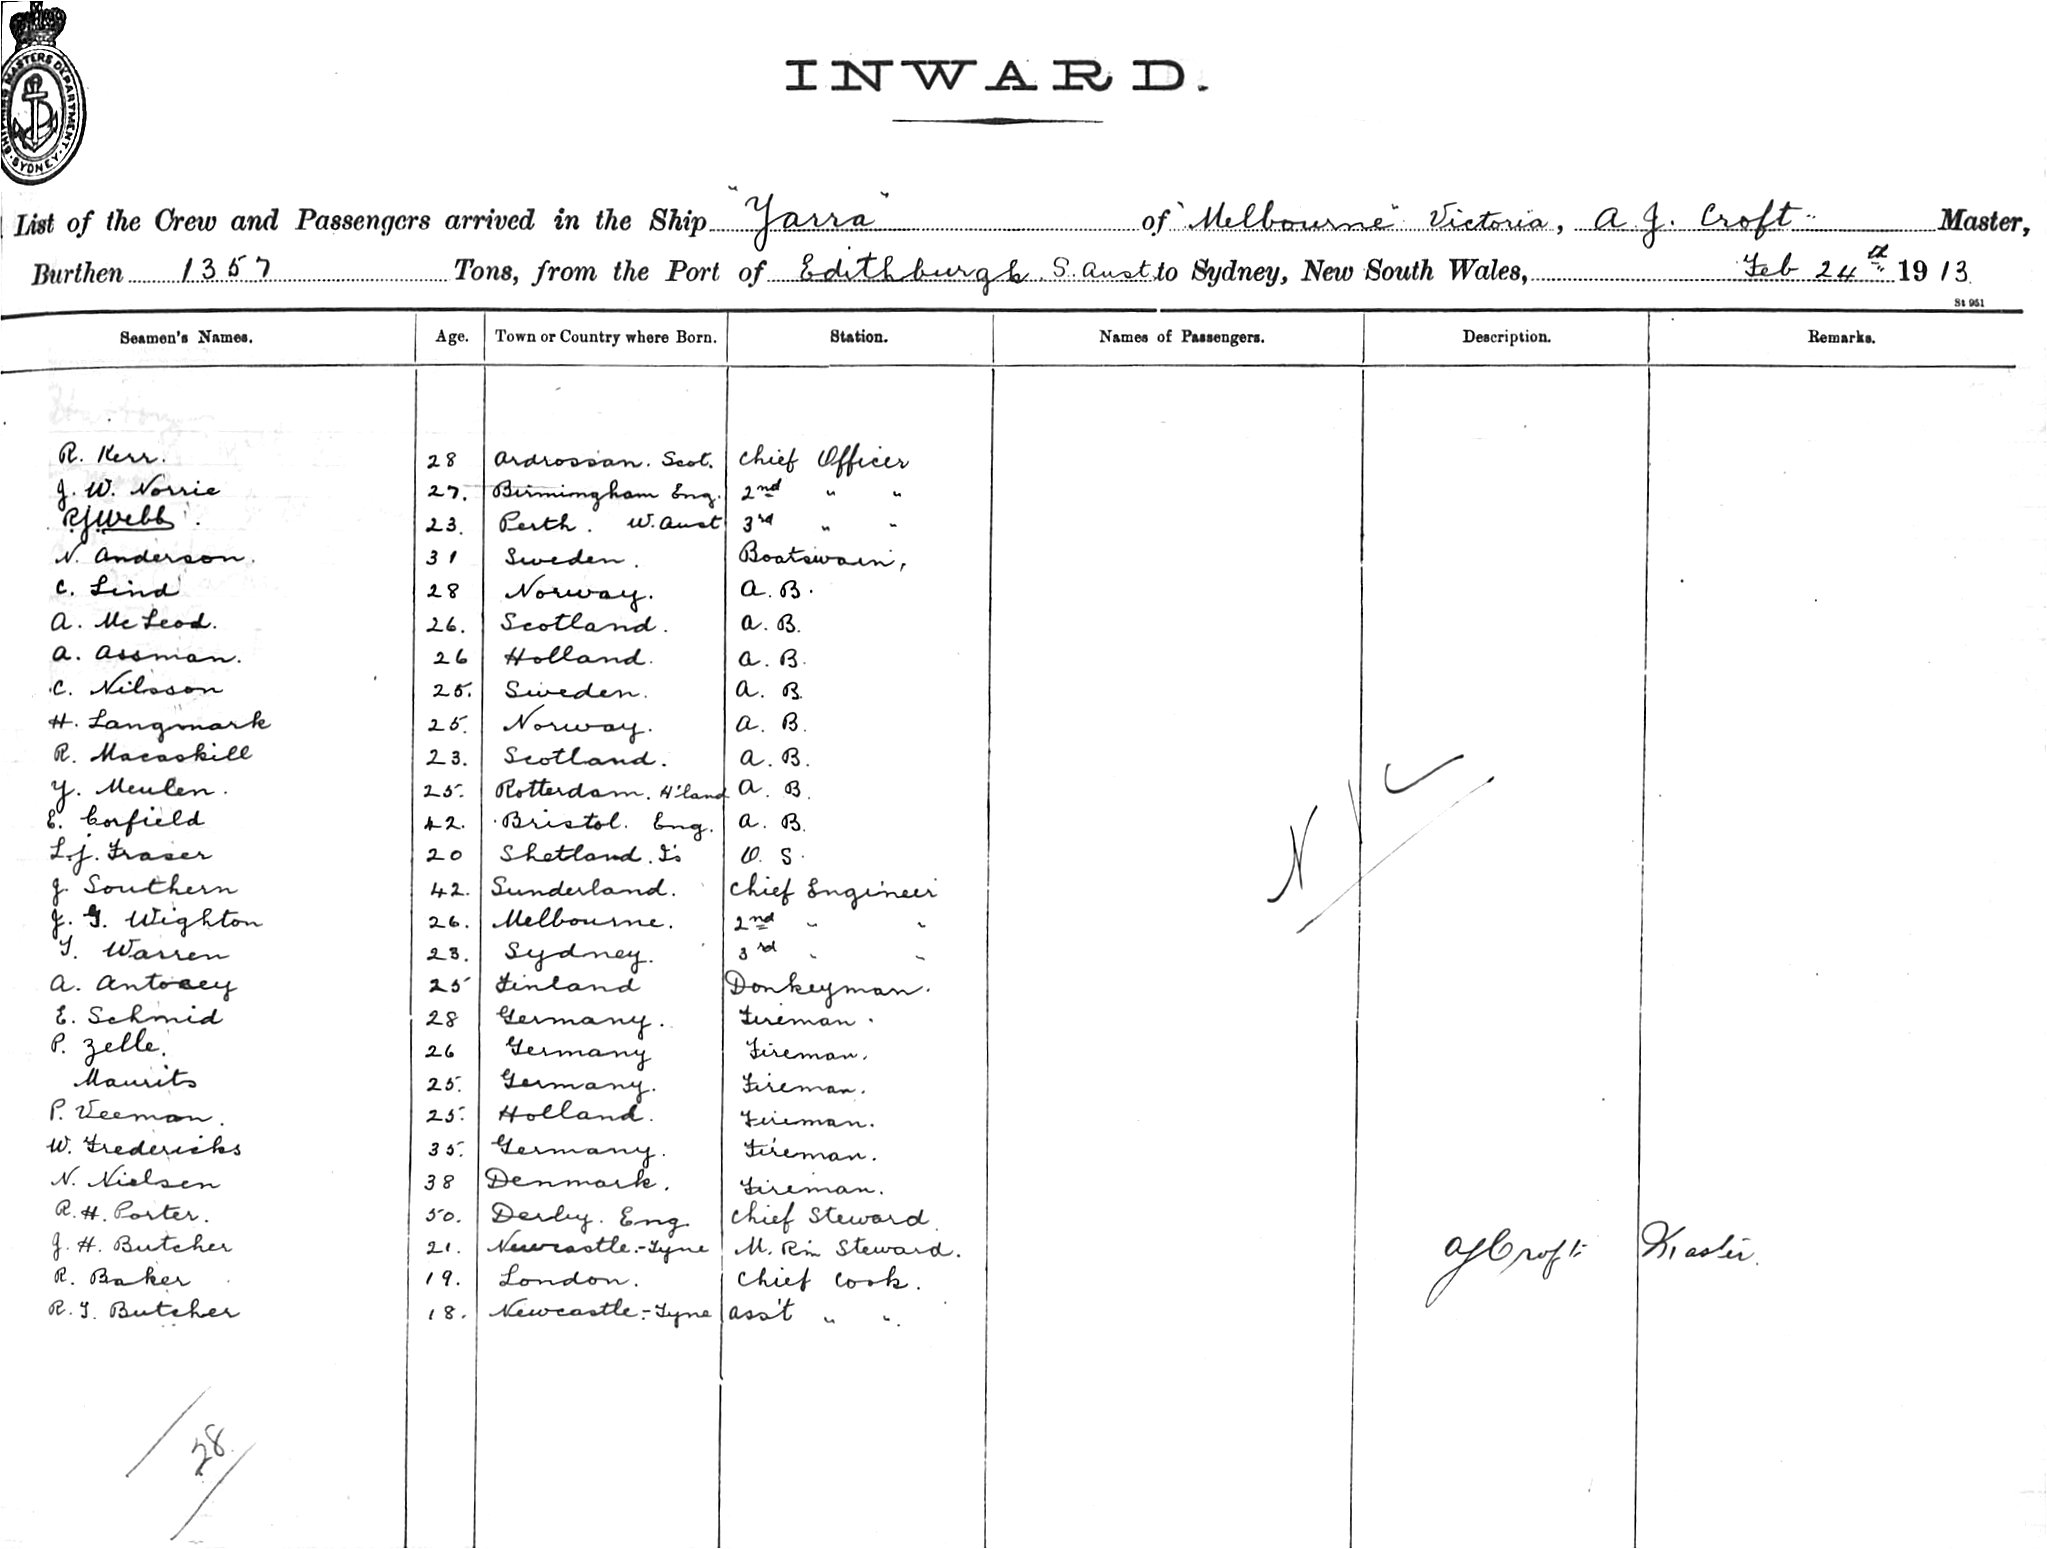 SHIPPING MASTERS DEPARTMENT. SYDNEY.
INWARD.
List of the Crew and Passengers arrived in the Ship "Yarra" of "Melbourne" Victoria, A. J. Croft Master,
Burthen 1357 Tons, from the Port of Edithburgh S. Aust to Sydney, New South Wales, Feb 24th 1913.
St 951
Seamen's Names. Age. Town or Country where Born. Station. Names of Passengers. Description. Remarks.
R. Kerr. 28 Ardrossan. Scot. Chief Officer
J. W. Norrie 27. Birmimgham Eng. 2nd " "
R J Webb. 23. Perth. W. Aust 3rd " "
N. Anderson. 31 Sweden. Boatswain,
C. Lind 28 Norway. A. B.
A. McLeod. 26. Scotland. A. B.
A. Assman. 26 Holland. A. B.
C. Nilsson 25. Sweden. A. B.
H. Langmark 25. Norway. A. B.
R. Macaskill 23. Scotland. A. B.
Y. Meulen. 25. Rotterdam. H'land A. B.
E. Corfield 42. Bristol. Eng. A. B.
L. J. Fraser 20 Shetland. Is O. S.
J. Southern 42. Sunderland. Chief Engineer
J. G. Wighton 26. Melbourne. 2nd " "
T. Warren 23. Sydney. 3rd " "
A. 25 Finland Donkeyman.
E. Schmid 28 Germany. Fireman.
P. Zelle. 26 Germany Fireman.
Maurits 25. Germany. Fireman.
P. Veeman. 25. Holland. Fireman.
W. Fredericks 35. Germany. Fireman.
N. Nielsen 38 Denmark. Fireman.
R. H. Porter. 50. Derby. Eng. Chief Steward
J. H. Butcher 21. Newcastle-Tyne M. Rm Steward.
R. Baker 19. London. Chief Cook.
R. T. Butcher 18. Newcastle-Tyne ass't " "
AJCroft Master.
28